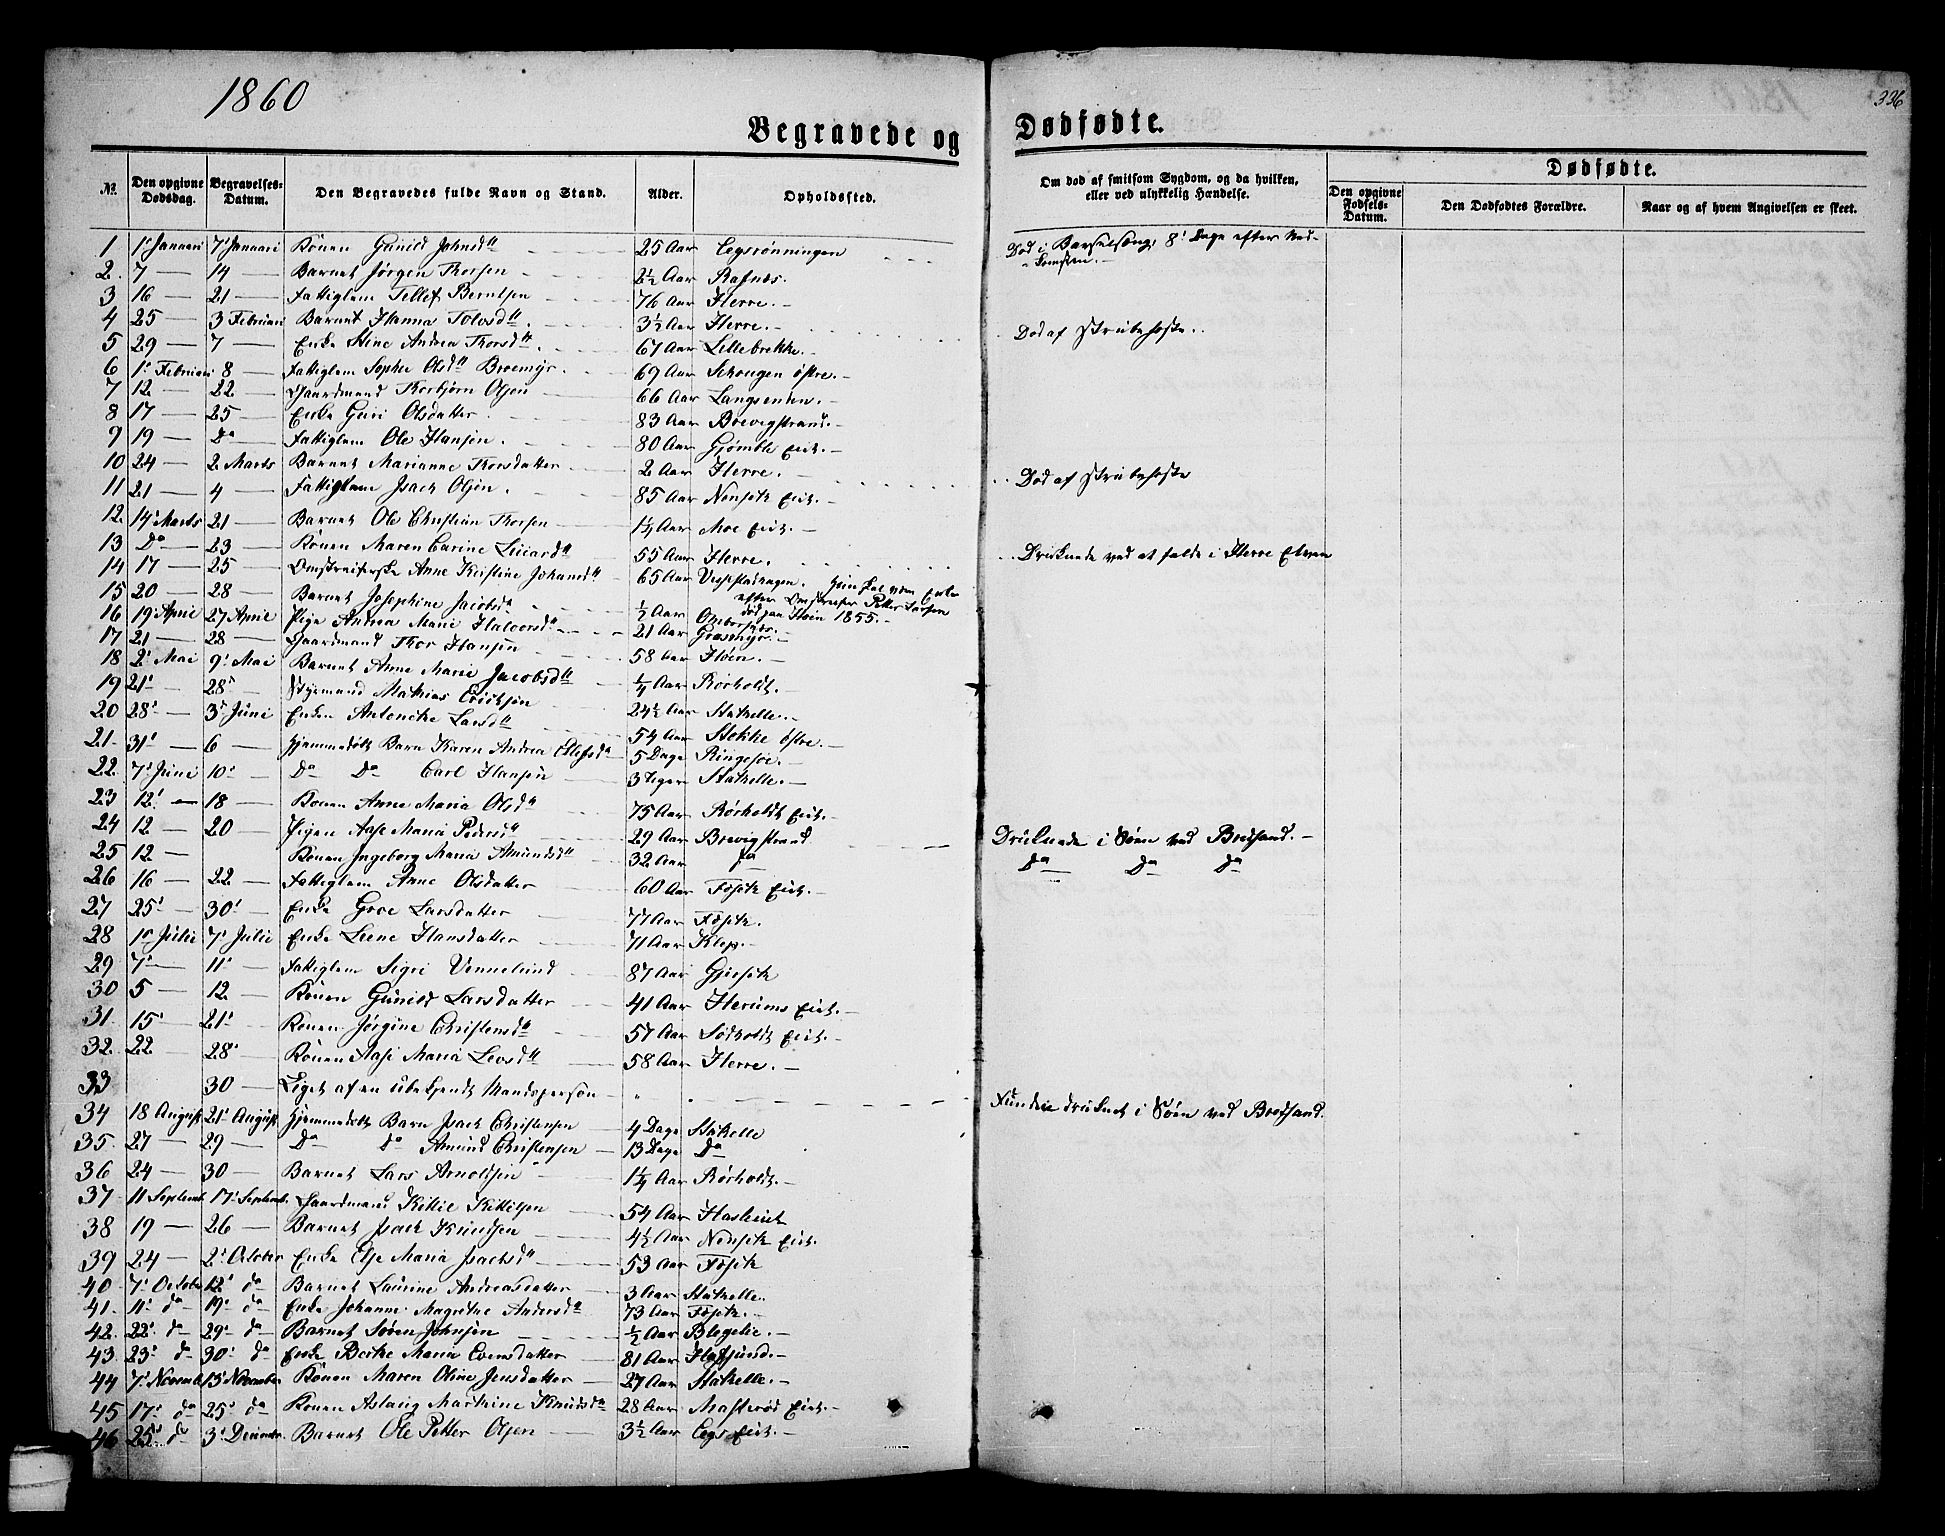 1860
336
Begravede og Dødfødte.
No. Den opgivne Dødsdag. Begravelses-Datum. Den Begravedes fulde Navn og Stand. Alder. Opholdssted. Om død af smitsom Sygdom, og da hvilken, eller ved ulykkelig Hændelse. Dødfødte.
Den opgivne Fødsels-Datum. Den Dødfødtes Forældre. Naar og af hvem Angivelsen er skeet.
1 1' Januari 7' Januari Konen Gunild Johnsdtr 25 Aar Legrønningen Død i Barselseng, 8' Dage efter Ned-komsten.
2. 7 — 14 — Barnet Jørgen Thorsen 2½ Aar Rafnes.
3 16 — 21 — Fattiglem Tellef Berntsen 76 Aar Herre.
4 25 — 3 Februari Barnet Hanna Tolvsdtr. 3½ Aar Herre. Død af Strubehoste.
5 29 — 7 — Enke Stine Andrea Thorsdtr. 67 Aar Lillebrekke.
6 1' Februari 8 — Fattiglem Sophie Olsdtr Broemyr. 69 Aar Schougen østre.
7 12 — 22 — Gaardmand Thorbjørn Olsen 66 Aar Langsenten.
8 17 — 25 — Enke Guri Olsdatter 83 Aar Brevigstrand.
9 19 — Do — Fattiglem Ole Hansen. 80 Aar Gjømle Eiet.
10 24 — 2 Marts Barnet Marianne Thorsdatter 2 Aar Herre. Død af Strubehoste
11 21 — 4 — Fattiglem Isach Olsen. 85 Aar Nensetk Eiet.
12. 14' Marts 21 — Barnet Ole Christian Thorsen 1¼ Aar Moe Eiet.
13 Do — 23 — Konen Maren Carine 55 Aar Herre. Druknede ved at falde i Herre Elven
14 17 — 25 — Anne Kirstine Johansdtr 65 Aar
15 20 — 28 — Barnet Josephine Jacobsdtr ½ Aar efter Petter Larsen død paa Høen 1855.
16 19 April 27 April Pige Andrea Marie Halvorsdtr 21 Aar Grasmyr.
17 21 — 28 — Gaardmand Thor Hansen 58 Aar Høen.
18 2' Mai 9' Mai Barnet Anne Marie Jacobsdtr ¼ Aar Rørholdt.
19 21' — 28' — Styrmand Mathias Erichsen 24½ Aar Stathelle.
20 28' — 3' Juni Enken Antonette Larsdtr 54 Aar Stokke østre.
21. 31' — 6 — Hjemmedøbt Barn Karen Andrea Ellefsdtr 5 Dage Ringesøe.
22. 7' Juni 10' — Do Do Carl Hansen 3 Uger Stathelle.
23 12' — 18 — Konen Anne Maria Olsdtr 75 Aar Rørholdt Eiet.
24 12 — 20 — Pigen Aase Maria Pedersdtr 29 Aar Brevigstrand Druknede i Søen ved Brodsand.
25 12 — Konen Ingeborg Maria Amundsdtr 32 Aar Do Do Do Do
26 16 — 22 — Fattiglem Anne Olsdatter 60 Aar Tosetk Eiet.
27 25' — 30' — Enke Groe Larsdatter 77 Aar Tosetk.
28 1' Juli 7' Juli Enke Lene Hansdatter 71 Aar Klep.
29 7' — 11' — Fattiglem Sigri Vennelund 87 Aar Gjersetk
30 5 — 12 — Konen Gunild Larsdatter 41 Aar Herums Eiet.
31. 15' — 21' — Konen Jørgine Christensdtr 57 Aar Sødholdt Eiet.
32. 22 — 28' — Konen Aase Maria Levsdtr 58 Aar Herre.
33 30 — Liget af en ubekjendt Mandsperson Fundet druknet i Søen ved Brodsand.
34 18 August 21' August Hjemmedøbt Barn Isach Christensen 4 Dage Stathelle
35. 27 — 29 — Do do Amund Christensen 13 Dage Do
36 24 — 30 — Barnet Lars Arnoldsen 1¼ Aar Rørholdt.
37 11 Septemb. 17' Septemb. Gaardmand Kittil Kittilsen 54 Aar Hasleiet
38 19 — 26 — Barnet Isach Knudsen 4½ Aar Nensetk Eiet.
39 24 — 2' October Enke Else Maria Isachsdtr 53 Aar Tosetk
40 7' October 12' do Barnet Laurine Andreasdatter 3 Aar Stathelle.
41. 11' do 19' do Enke Johanne Magrethe Andersdtr 73 Aar Tosetk.
42. 22' do 29' do Barnet Søren Johnsen ½ Aar Blegelie.
43. 23' do 30' do Enke Berthe Maria Evensdatter 81 Aar Hafsund.
44 7' Novemb. 15' November Konen Maren Oline Jensdatter 27 Aar Stathelle.
45 17' do 25' do Konen Aslaug Marthine Knudsdtr 28 Aar Masterød Eiet.
46 25' do 3' December Barnet Ole Petter Olsen 3½ Aar Legs Eiet.